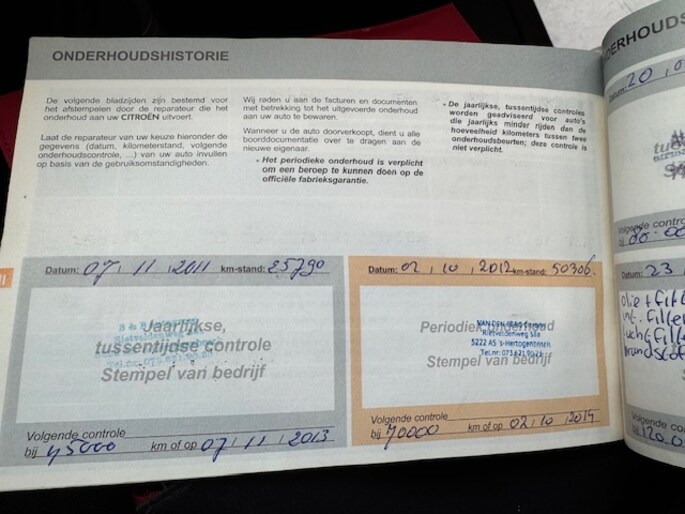 ONDERHOUDSHISTORIE
De volgende bladzijden zijn bestemd voor
het afstempelen door de reparateur die het
onderhoud aan uw CITROËN uitvoert.
Laat de reparateur van uw keuze hieronder de
gegevens (datum, kilometerstand, volgende
onderhoudscontrole, ...) van uw auto invullen
op basis van de gebruiksomstandigheden.
Wij raden u aan de facturen en documenten
met betrekking tot het uitgevoerde onderhoud
aan uw auto te bewaren.
Wanneer u de auto doorverkoopt, dient u alle
boorddocumentatie over te dragen aan de
nieuwe eigenaar.
• Het periodieke onderhoud is verplicht
om een beroep te kunnen doen op de
officiële fabrieksgarantie.
• De jaarlijkse, tussentijdse controles
worden geadviseerd voor auto's
die jaarlijks minder rijden dan de
hoeveelheid kilometers tussen twee
onderhoudsbeurten; deze controle is
niet verplicht.
Datum: 07 / 11 / 2011 km-stand: 25790
Jaarlijkse,
tussentijdse controle
Stempel van bedrijf
Volgende controle
bij 45000 km of op 07 / 11 / 2013
Datum: 02 / 10 / 2012 km-stand: 50306.
Periodiek onderhoud
VAN DEN
Rietveldenweg 58a
5222 AS 's-Hertogenbosch
Tel.nr: 073.621.90.23
Stempel van bedrijf
Volgende controle
bij 70000 km of op 02 / 10 / 2014
Datum: 20
Volgende contro
bij 80.00
Datum: 23
olie + filt
int. filter
lucht filte
brandstof
Volgende co
bij 120.0